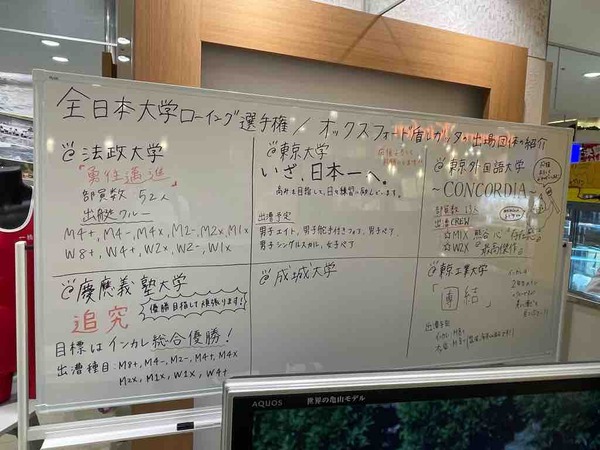 全日本大学ローイング選手権 / オックスフォード盾レガッタの出場団体の紹介
@法政大学
「勇往邁進」
部員数 52人
出艇クルー
M4+, M4-, M4x, M2-, M2x, M1x
W8+, W4+, W2x, W2-, W1x
@東京大学
いざ、日本一へ。
出漕予定
男子エイト、男子舵手付きフォア、男子ペア
男子シングルスカル、女子ペア
@東京外国語大学
~CONCORDIA~
部員数 13人
出漕CREW
☆M1X
☆W2X
@慶應義塾大学
追究
優勝目指して頑張ります!
目標はインカレ総合優勝!
出漕種目: M8+, M4-, M2-, M4+, M4x
M2x, M1x, W1x, W4+
@成城大学
@東京工業大学
「団結」
出漕予定
AQUOS 世界の亀山モデル